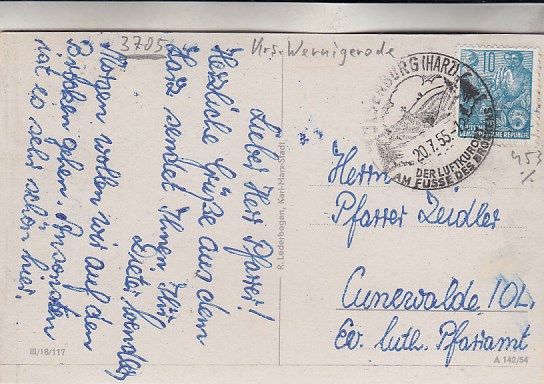 3705
Krs. Wernigerode
Lieber Herr Pfarrer!
Herzliche Grüße aus dem
Harz sendet Ihnen Ihr
Dieter
Morgen wollen wir auf den
Brocken gehen. Ansonsten
ist es sehr schön hier.
III/18/117
R. Lederbogen, Karl-Marx-Stadt
10
DEUTSCHE DEMOKRATISCHE REPUBLIK
(HARZ)
20.7.55
DER LUFTKURORT
AM FUSSE DES BROCKENS
453
Herrn
Pfarrer Zeidler
Cunewalde /OL.
Ev. luth. Pfarramt
A 142/54